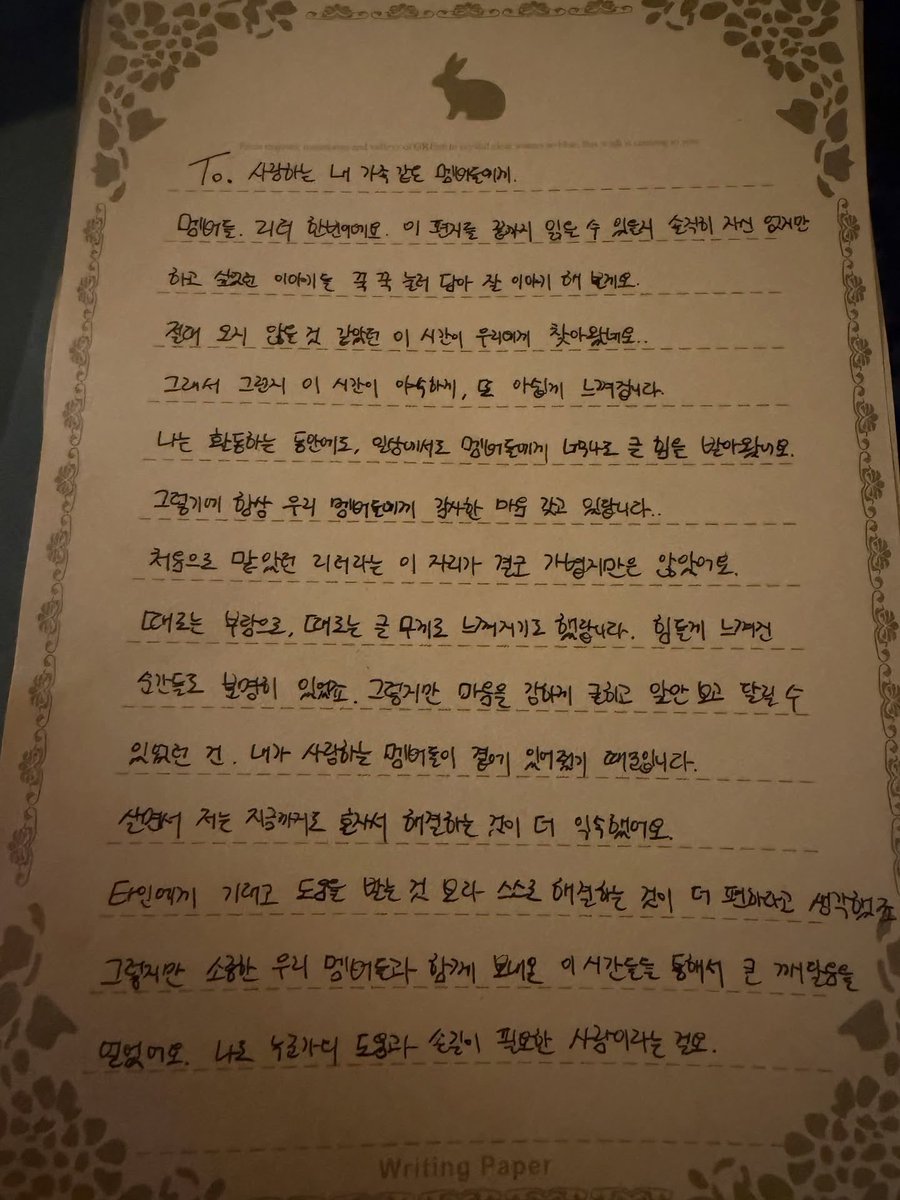 To. 사랑하는 내 가족 같은 멤버들에게.
멤버들. 리더 한빈이에요. 이 편지를 끝까지 읽을 수 있을지 솔직히 자신 없지만
하고 싶었던 이야기들 꾹 꾹 눌러 담아 잘 이야기 해 볼게요.
절대 오지 않을 것 같았던 이 시간이 우리에게 찾아왔네요..
그래서 그런지 이 시간이 야속하게, 또 아쉽게 느껴집니다.
나는 활동하는 동안에도, 일상에서도 멤버들에게 너무나도 큰 힘을 받아왔어요.
그렇기에 항상 우리 멤버들에게 감사한 마음 갖고 있답니다..
처음으로 맡았던 리더라는 이 자리가 결코 가볍지만은 않았어요.
때로는 부담으로, 때로는 큰 무게로 느껴지기도 했답니다. 힘들게 느껴진
순간들도 분명히 있었죠. 그렇지만 마음을 강하게 굳히고 앞만 보고 달릴 수
있었던 건. 내가 사랑하는 멤버들이 곁에 있어줬기 때문입니다.
살면서 저는 지금까지도 혼자서 해결하는 것이 더 익숙했어요.
타인에게 기대고 도움을 받는 것 보다 스스로 해결하는 것이 더 편하다고 생각했죠
그렇지만 소중한 우리 멤버들과 함께 보내온 이 시간들을 통해서 큰 깨달음을
얻었어요. 나도 누군가의 도움과 손길이 필요한 사람이라는 걸요.
Writing Paper